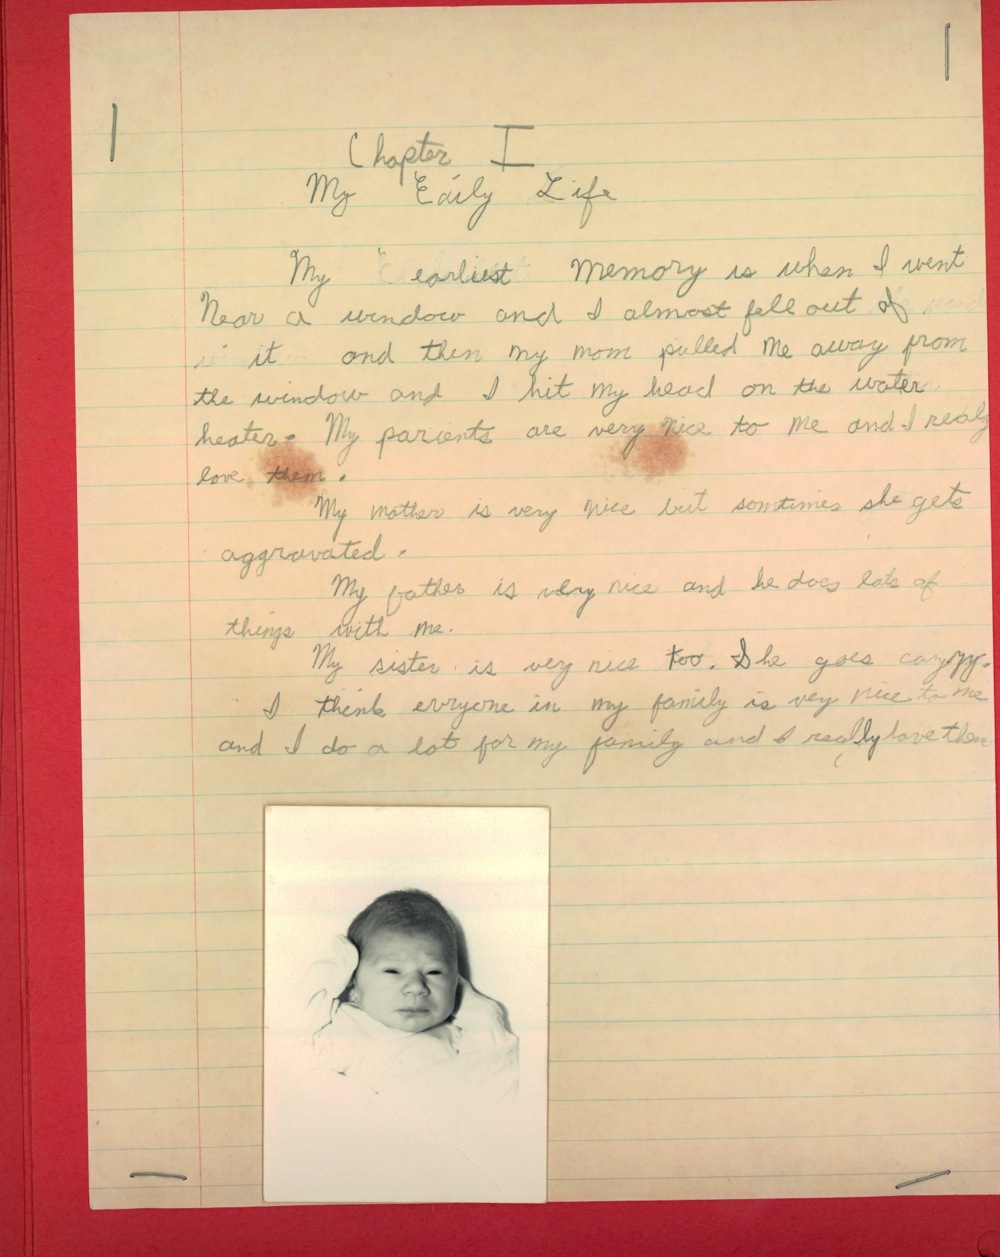 Chapter I
My Eaily Life
My earliest Memory is when I went
Near a window and I almost fell out of
it and then my mom pulled me away from
the window and I hit my head on the water
heater. My parients are very nice to me and I realy
love them.
My mother is very nice but somtimes she gets
aggravated.
My father is very nice and he does lots of
things with me.
My sister is very nice too. She goes
I think evryone in my family is very nice to me
and I do a lot for my family and I really love them